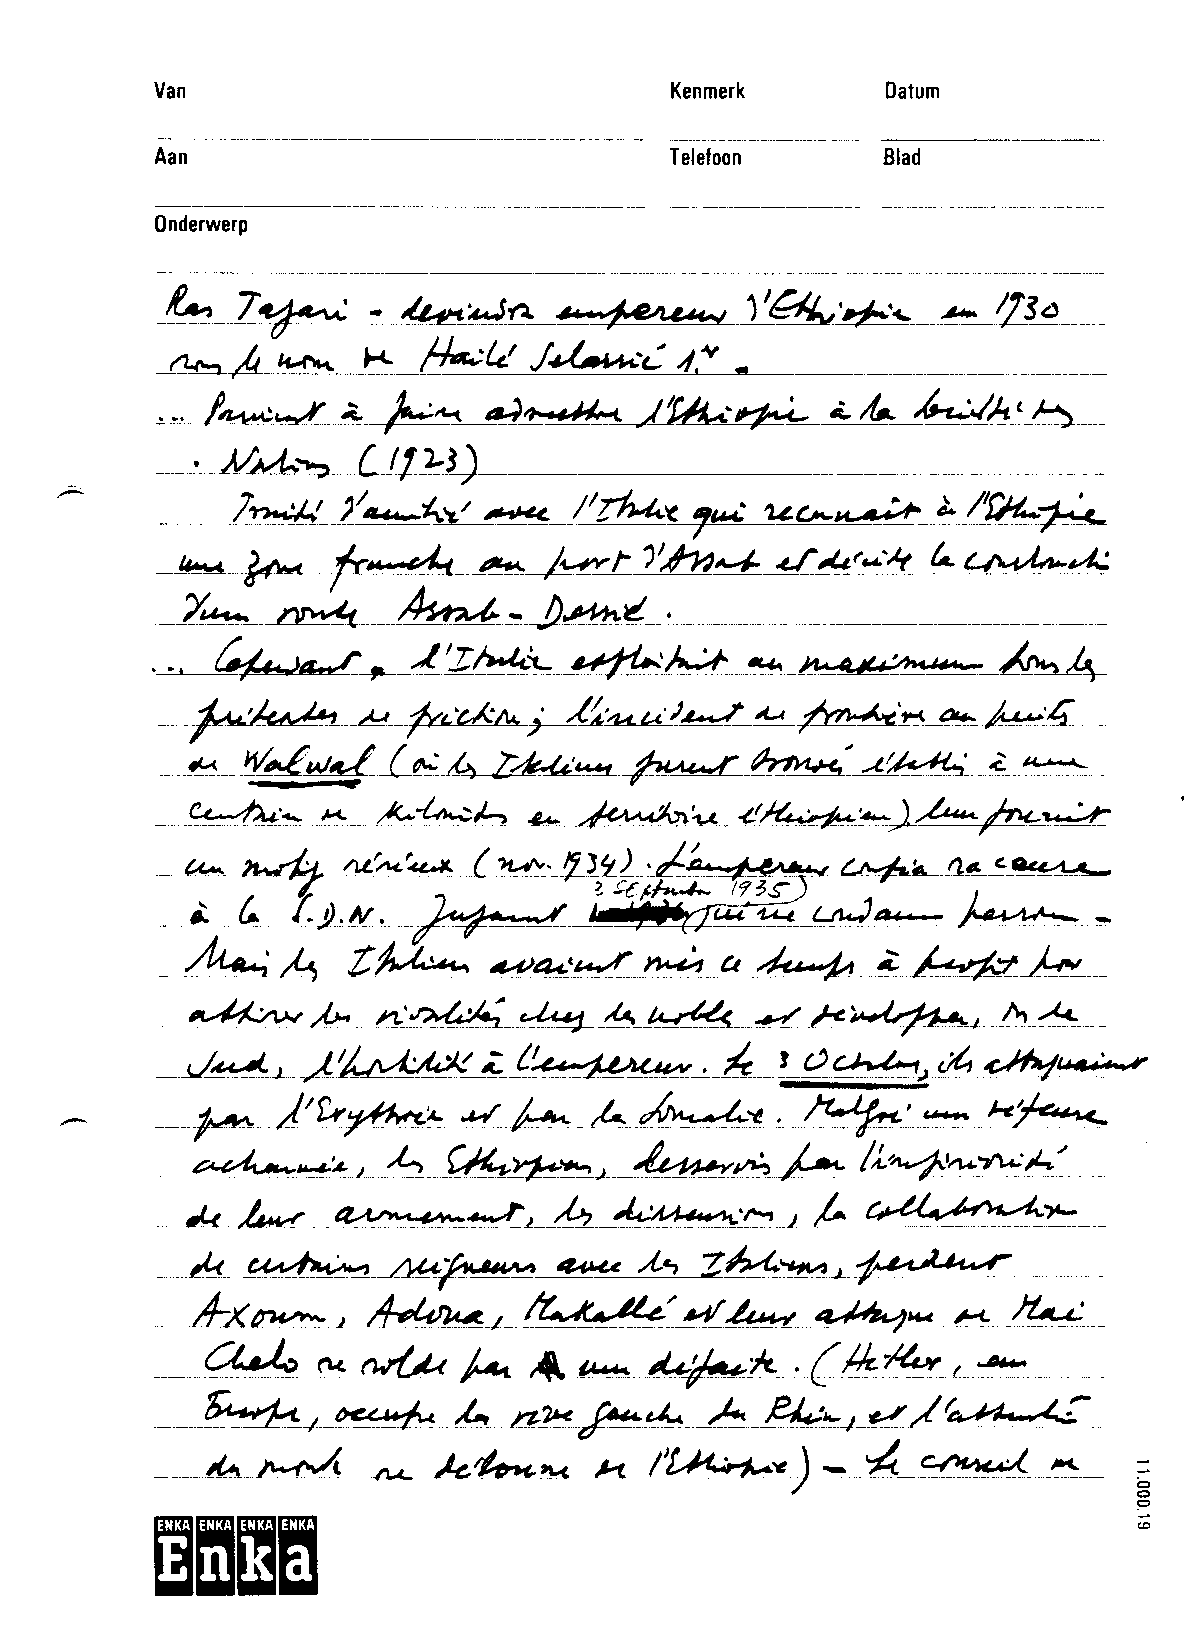 Van Kenmerk Datum
Aan Telefoon Blad
Onderwerp
Ras Tafari - deviendra empereur d'Ethiopie en 1930
sous le nom de Hailé Selassié 1er.
... Parvient à faire admettre l'Ethiopie à la Société des
. Nations (1923)
Traité d'amitié avec l'Italie qui reconnaît à l'Ethiopie
une zone franche au port d'Assab et décide la constructi
d'une route Assab - Dessié.
... Cependant, l'Italie exploitait au maximum tous les
prétextes de friction; l'incident de frontière au puits
de Walwal (où les Italiens furent trouvés établis à une
centaine de kilomètres en territoire éthiopien) leur fournit
un motif sérieux (nov. 1934). L'empereur confia sa cause
3 Septembre 1935)
à la S.D.N. Jugement (qui ne condamne personne -
Mais les Italiens avaient mis ce temps à profit pour
attirer les rivalités chez les nobles et développer, ds le
Sud, l'hostilité à l'empereur. Le 3 Octobre, ils attaquaient
par l'Erythrée et par la Somalie. Malgré une défense
acharnée, les Ethiopiens, desservis par l'infériorité
de leur armement, les dissensions, la collaboration
de certains seigneurs avec les Italiens, perdent
Axoum, Adoua, Makallé et leur attaque de Mai
Chelo se solde par une défaite. (Hitler, en
Europe, occupe la rive gauche du Rhin, et l'attentié
du monde se détourne de l'Ethiopie) - Le conseil de
ENKA ENKA ENKA ENKA
Enka
11.000.19